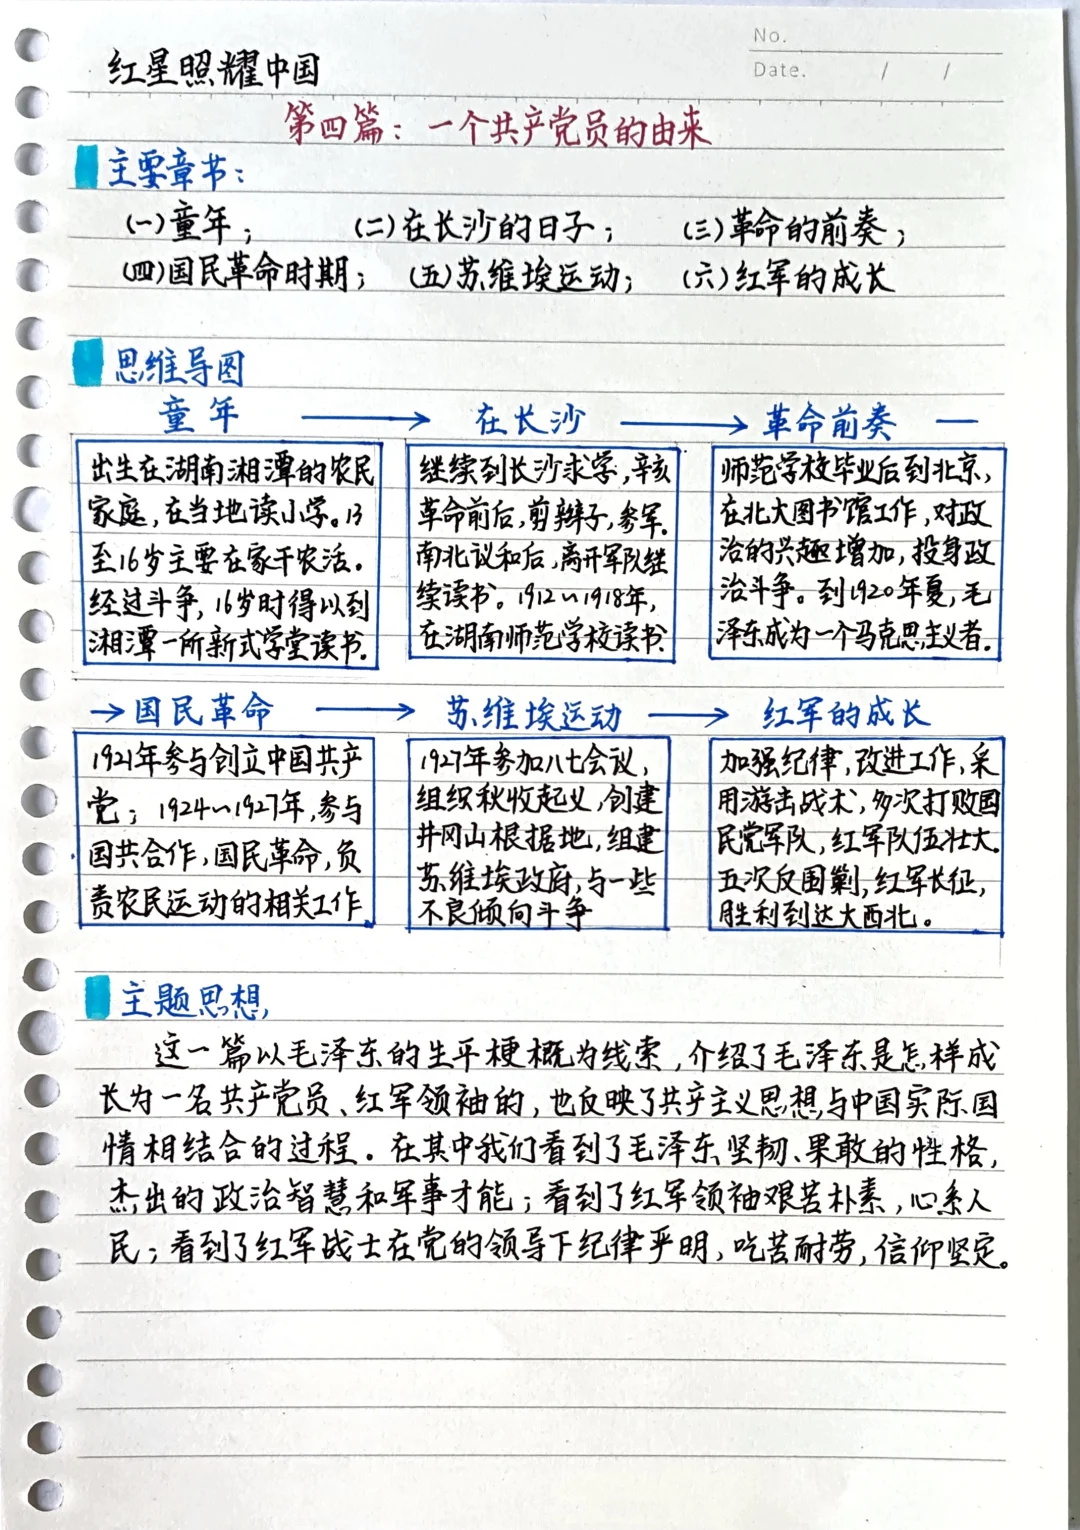 No.
Date. / /
红星照耀中国
第四篇：一个共产党员的由来
主要章节：
(一)童年； (二)在长沙的日子； (三)革命的前奏；
(四)国民革命时期； (五)苏维埃运动； (六)红军的成长
思维导图
童年 → 在长沙 → 革命前奏 —
出生在湖南湘潭的农民
家庭,在当地读小学。13
至16岁主要在家干农活。
经过斗争,16岁时得以到
湘潭一所新式学堂读书.
继续到长沙求学,辛亥
革命前后,剪辫子,参军.
南北议和后,离开军队继
续读书。1912~1918年,
在湖南师范学校读书.
师范学校毕业后到北京,
在北大图书馆工作,对政
治的兴趣增加,投身政
治斗争。到1920年夏,毛
泽东成为一个马克思主义者.
→ 国民革命 → 苏维埃运动 → 红军的成长
1921年参与创立中国共产
党；1924~1927年,参与
国共合作,国民革命,负
责农民运动的相关工作
1927年参加八七会议,
组织秋收起义,创建
井冈山根据地,组建
苏维埃政府,与一些
不良倾向斗争
加强纪律,改进工作,采
用游击战术,多次打败国
民党军队,红军队伍壮大.
五次反围剿,红军长征,
胜利到达大西北。
主题思想,
这一篇以毛泽东的生平梗概为线索,介绍了毛泽东是怎样成
长为一名共产党员、红军领袖的,也反映了共产主义思想与中国实际国
情相结合的过程。在其中我们看到了毛泽东坚韧、果敢的性格,
杰出的政治智慧和军事才能；看到了红军领袖艰苦朴素,心系人
民；看到了红军战士在党的领导下纪律严明,吃苦耐劳,信仰坚定。